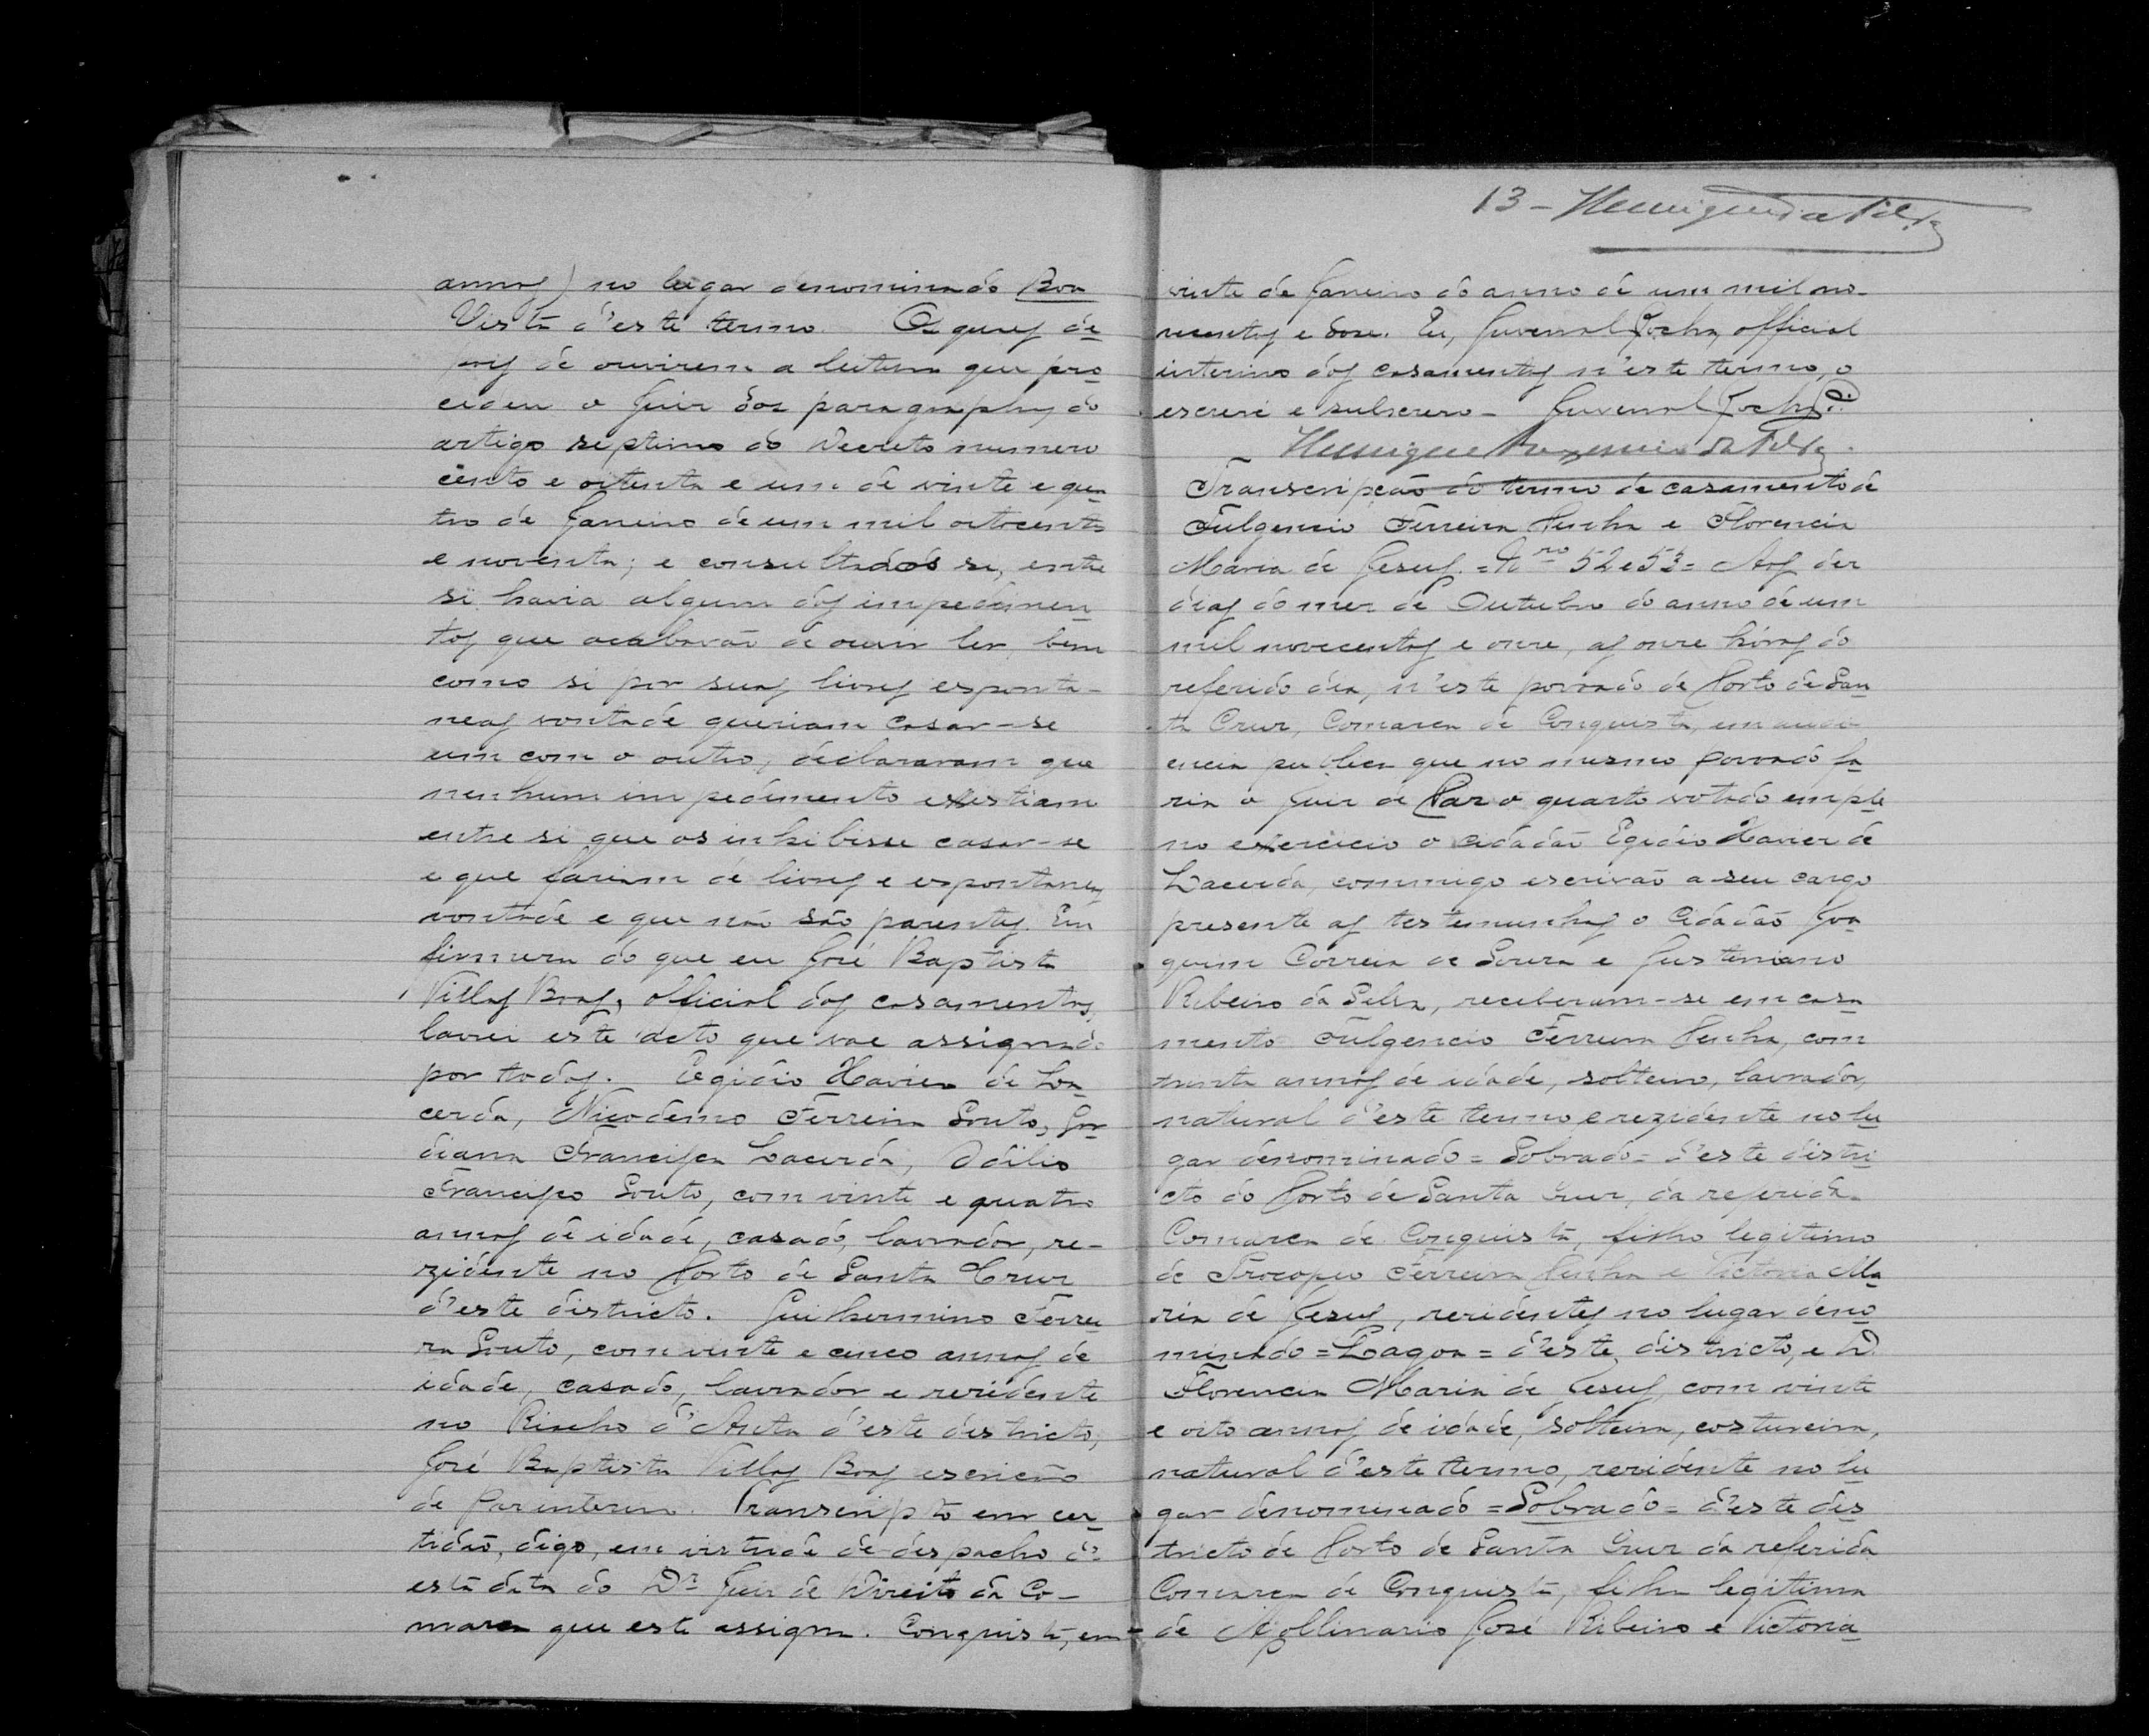 annos) no lugar denominado Boa
Vista d'este termo. Os quaes de
pois de ouvirem a leitura que pro
cedeu o Juiz dos paragraphos do
artigo septimo do Decreto numero
cento e oitenta e um de vinte e qua
tro de Janeiro de um mil oitocentos
e noventa; e consultados si, entre
si havia algum dos impedimen
tos que acabavão de ouvir ler, bem
como si por suas livres esponta-
neas vontade queriam casar-se
um com o outro, declararam que
nenhum impedimento existiam
entre si que os inhibisse casar-se
e que fariam de livres e espontaneas
vontade e que não são parentes. Em
firmeza do que eu José Baptista
Villas Boas, official dos casamentos,
lavrei este acto que vae assignado
por todos. Egidio Xavier de La
cerda, Nicodemo Ferreira Souto, Jor
diana Francisca Lacerda, Odilio
Francisco Souto, com vinte e quatro
annos de idade, casado, lavrador, re-
zidente no Porto de Santa Cruz
d'este districto. Guilhermino Ferrei
ra Souto, com vinte e cinco annos de
idade, casado, lavrador e rezidente
no Riacho d'Anta d'este districto,
José Baptista Villas Boas escrivão
de Paz interino. Transcripto em cer
tidão, digo, em virtude de despacho d'
esta data do Dr Juiz de Direito da Co-
marca que este assigna. Conquista, em
13 - Henrique da Silva
vinte de Janeiro do anno de um mil no-
vecentos e doze. Eu, Juvenal Rocha, official
interino dos casamentos n'este termo, o
escrevi e subscrevo - Juvenal Rocha
Henrique da Silva
Transcripção do termo de casamento de
Fulgencio Ferreira Penha e Florencia
Maria de Jesus. = Nro 52 e 53 = Aos dez
dias do mez de Outubro do anno de um
mil novecentos e onze, as onze horas do
referido dia, n'este povoado de Porto de San
ta Cruz, Comarca de Conquista, em audi
encia publica que no mesmo povoado fa
zia o Juiz de Paz o quarto votado em ple
no exercicio o cidadão Egidio Xavier de
Lacerda, commigo escrivão a seu cargo
presente as testemunhas o Cidadão Joa
quim Correia de Souza e Justiniano
Ribeiro da Silva, receberam-se em casa
mento Fulgencio Ferreira Penha, com
trinta annos de idade, solteiro, lavrador,
natural d'este termo e rezidente no lu
gar denominado = Sobrado = d'este distri
cto do Porto de Santa Cruz, da referida
Comarca de Conquista, filho legitimo
de Procopio Ferreira Penha e Victoria Ma
ria de Jesus, rezidentes no lugar deno
minado = Lagoa = d'este, districto, e D.
Florencia Maria de Jesus, com vinte
e oito annos de idade, solteira, costureira,
natural d'este termo, rezidente no lu
gar denominado = Sobrado = d'este dis
tricto de Porto de Santa Cruz da referida
Comarca de Conquista, filha legitima
de Apollinario José Ribeiro e Victoria